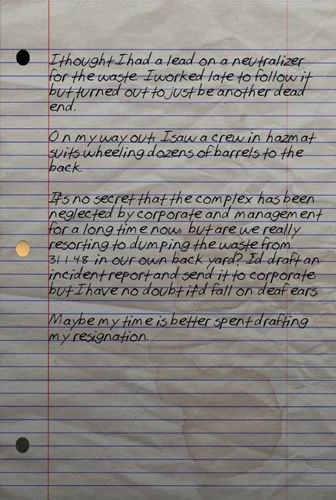 I thought I had a lead on a neutralizer
for the waste. I worked late to follow it
but turned out to just be another dead
end.
On my way out, I saw a crew in hazmat
suits wheeling dozens of barrels to the
back.
It's no secret that the complex has been
neglected by corporate and management
for a long time now, but are we really
resorting to dumping the waste from
31148 in our own back yard? I'd draft an
incident report and send it to corporate
but I have no doubt it'd fall on deaf ears.
Maybe my time is better spent drafting
my resignation.